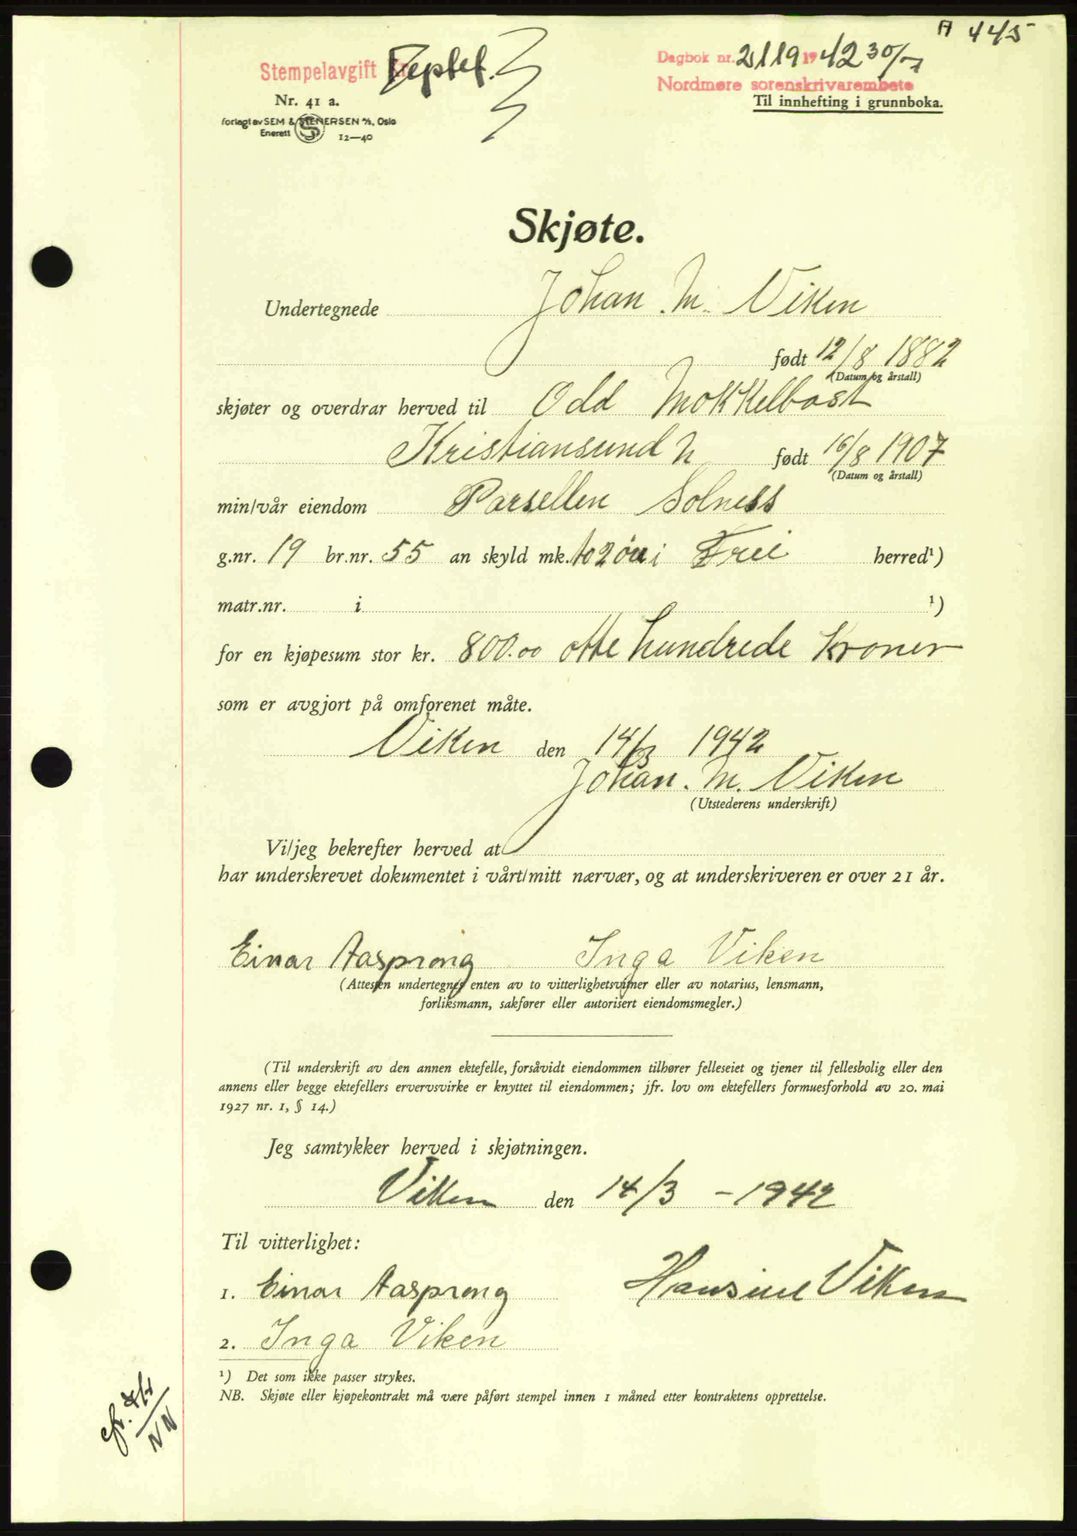 A 445
Stempelavgift Kr.
Dagbok nr. 2119 1942 30/7
Nordmøre sorenskrivarembete
Nr. 41 a.
Til innhefting i grunnboka.
forlagt av SEM & STENERSEN A/S, Oslo
Enerett 12—40
Skjøte.
Undertegnede Johan M. Viken
født 12/8 1882
(Datum og årstall)
skjøter og overdrar herved til Odd Mokkelbost
Kristiansund N født 16/8 1907
(Datum og årstall)
min/vår eiendom Parsellen Solness
g.nr. 19 br.nr. 55 an skyld mk. to 2 øre i Frei herred¹)
matr.nr. i ¹)
for en kjøpesum stor kr. 800.00 otte hundrede kroner
som er avgjort på omforenet måte.
Viken den 14/3 1942
Johan. M. Viken
(Utstederens underskrift)
Vi/jeg bekrefter herved at
har underskrevet dokumentet i vårt/mitt nærvær, og at underskriveren er over 21 år.
Einar Aasprong Inga Viken
(Attesten undertegnes enten av to vitterlighetsvitner eller av notarius, lensmann,
forliksmann, sakfører eller autorisert eiendomsmegler.)
(Til underskrift av den annen ektefelle, forsåvidt eiendommen tilhører felleseiet og tjener til fellesbolig eller den
annens eller begge ektefellers ervervsvirke er knyttet til eiendommen; jfr. lov om ektefellers formuesforhold av 20. mai
1927 nr. 1, § 14.)
Jeg samtykker herved i skjøtningen.
Viken den 14/3 - 1942
Til vitterlighet:
1. Einar Aasprong Hansine Viken
2. Inga Viken
¹) Det som ikke passer strykes.
NB. Skjøte eller kjøpekontrakt må være påført stempel innen 1 måned etter kontraktens opprettelse.
NN